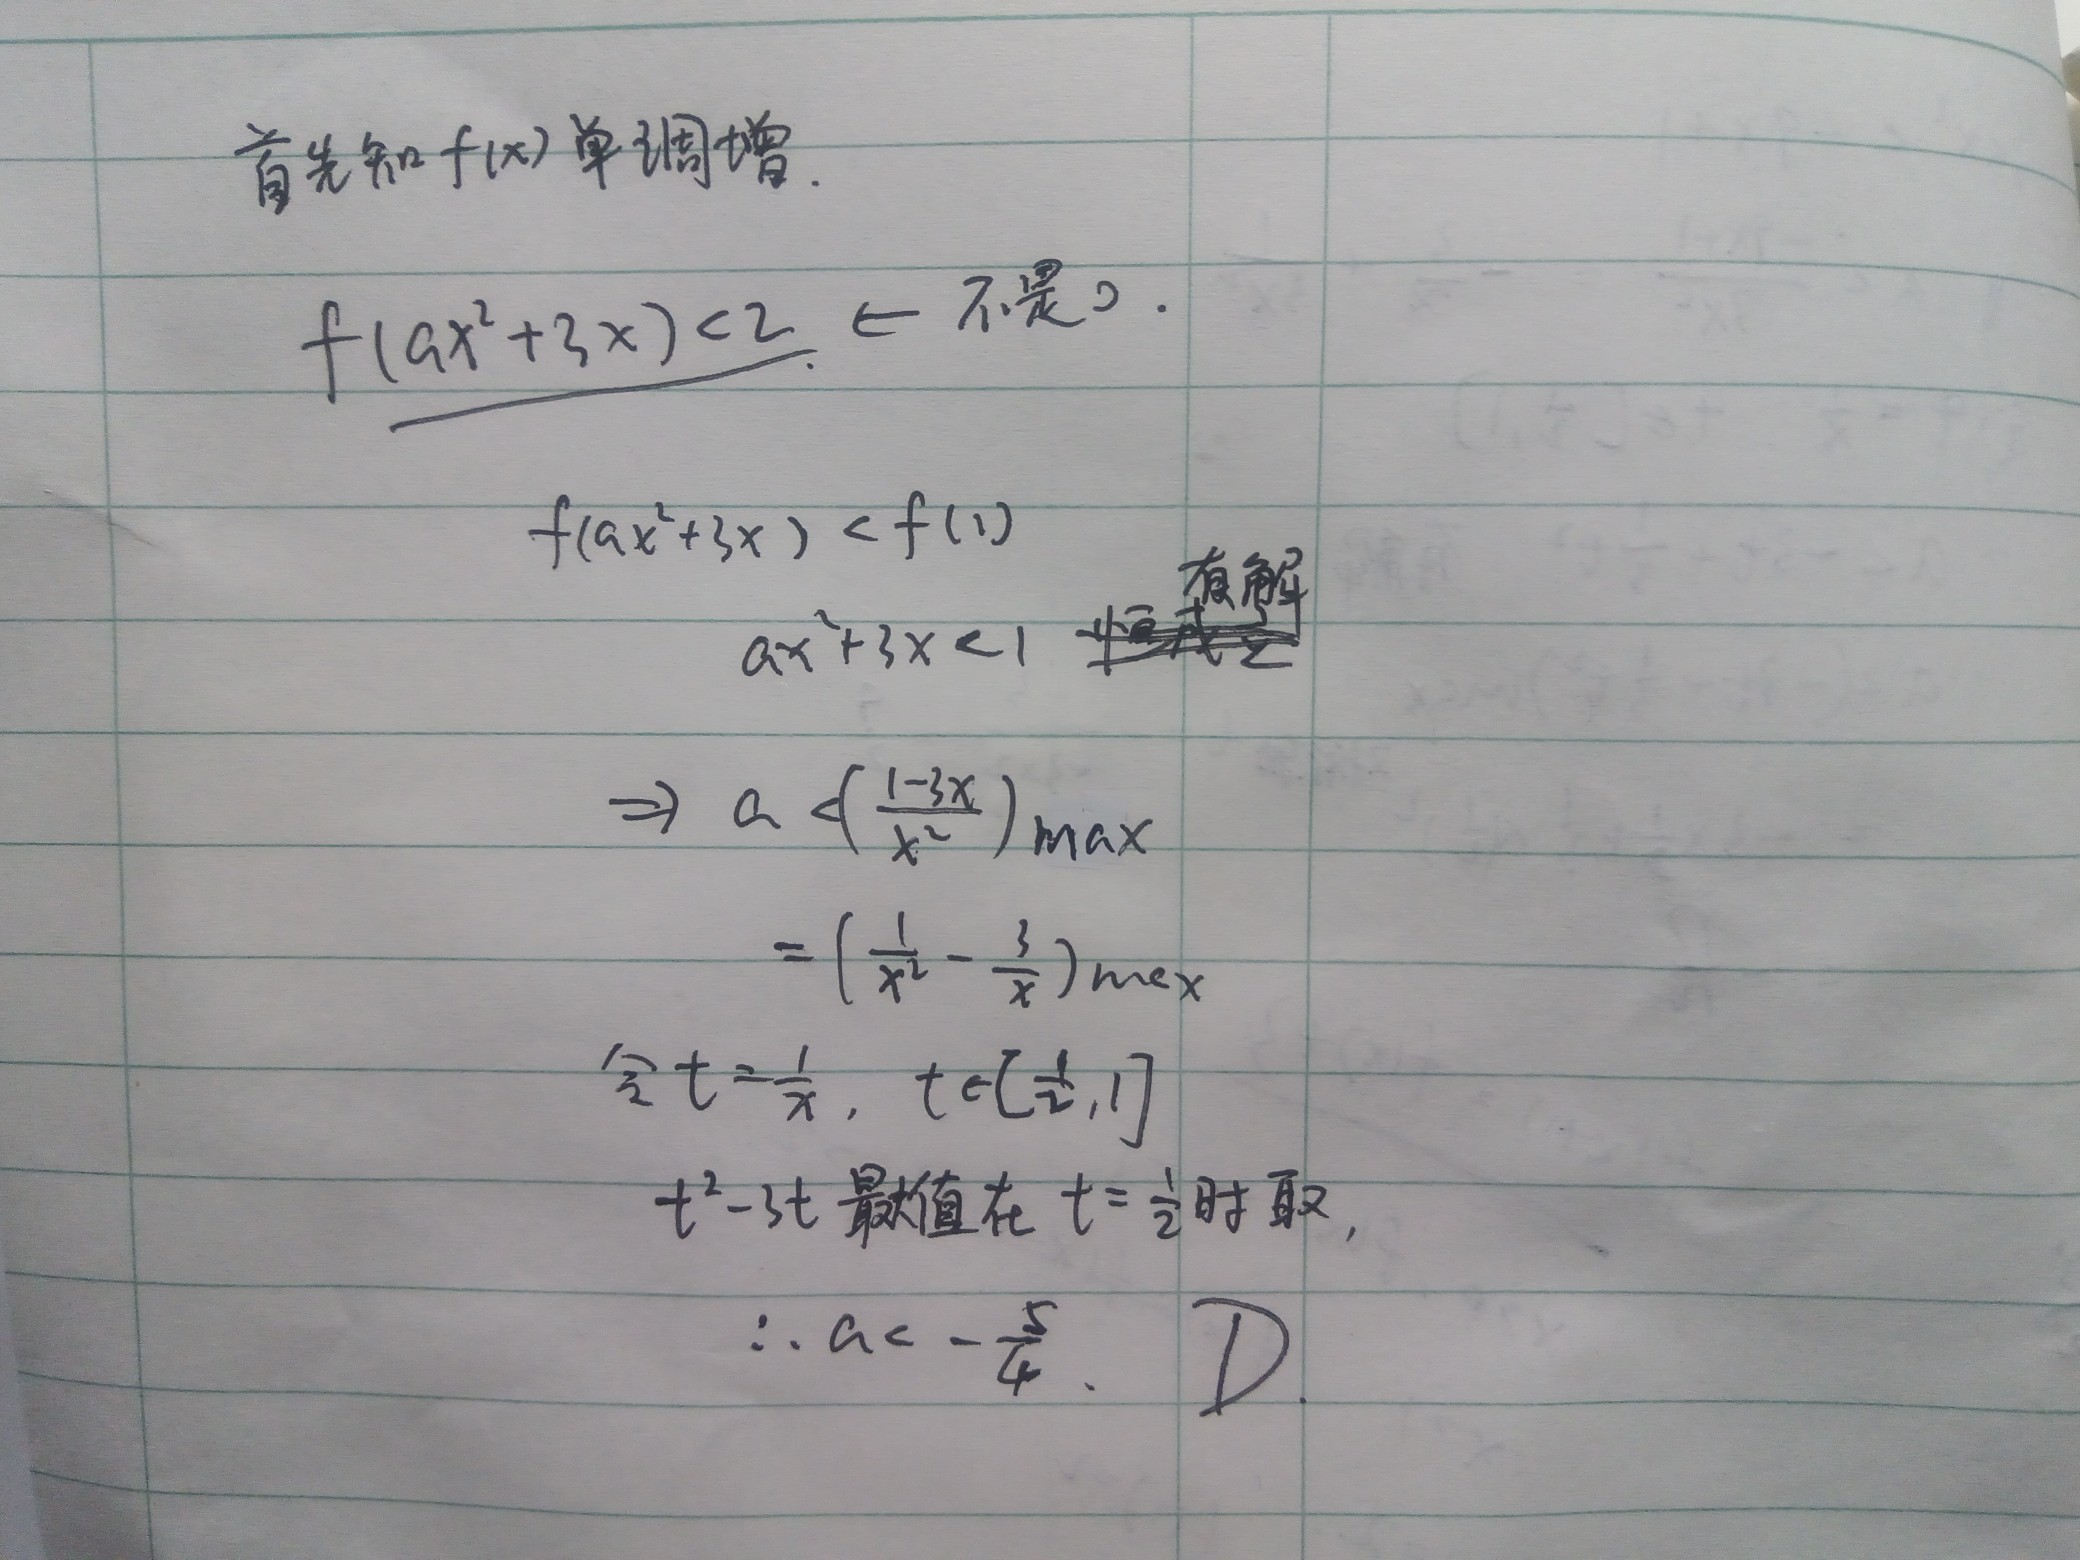 首先知 f(x) 单调增.
f(ax²+3x)<2 ← 不是0.
f(ax²+3x) < f(1)
有解
ax²+3x<1 恒成立
⇒ a <(\frac{1-3x}{x²})max
= (\frac{1}{x²} - \frac{3}{x})max
令 t=\frac{1}{x}, t∈[\frac{1}{2},1]
t²-3t 最大值在 t=\frac{1}{2}时取,
∴ a< -\frac{5}{4}. D.